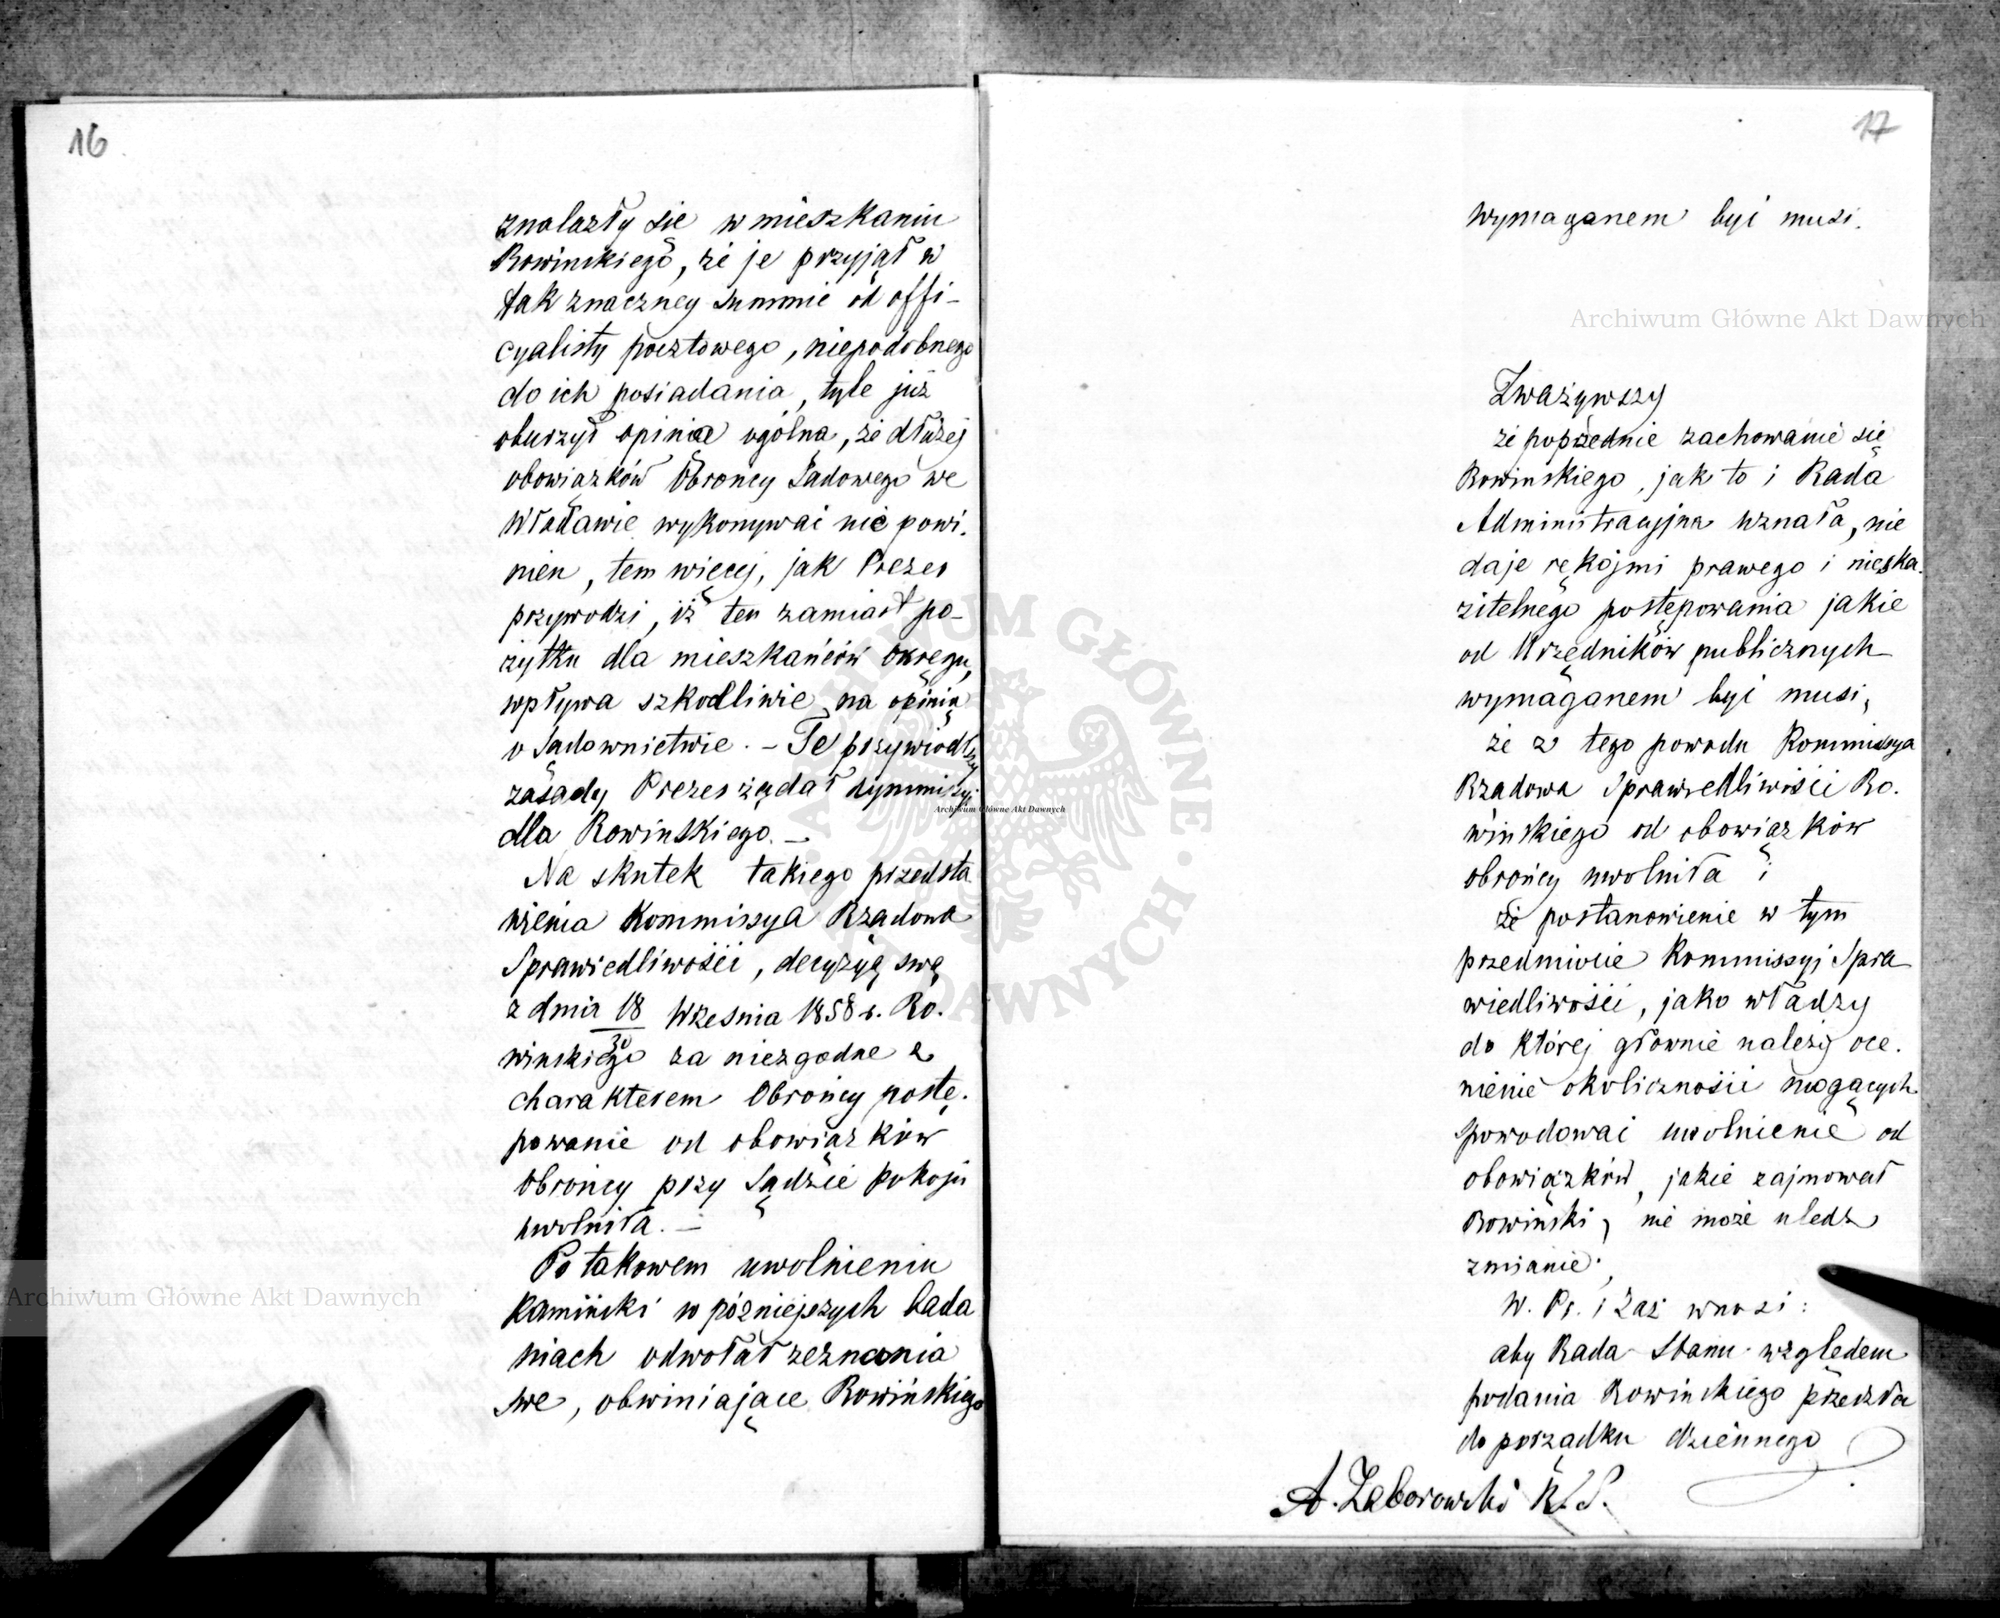 16
znalazły się w mieszkaniu
Rowinskiego, że je przyjął w
tak znaczney summie od offi-
cyalisty pocztowego, niepodobnego
do ich posiadania, tyle już
oburzył opinię ogólną, że dłużej
obowiązków Obrońcy Sądowego we
Włodawie wykonywać nie powi.
nien, tem więcej, jak Prezes
przywodzi, iż ten zamiast po-
żytku dla mieszkańców Okręgu,
wpływa szkodliwie na opinią
o Sądownictwie. - Te przywiódłszy
zasady Prezes żądał dymmisyi
dla Rowinskiego. -
Na skutek takiego przedsta
wienia Kommissya Rządowa
Sprawiedliwości, decyzyą swą
z dnia 18/30 Września 1858 r. Ro.
winskiego za niezgodne z
charakterem Obrońcy postę.
powanie od obowiązków
Obrońcy przy Sądzie Pokoju
uwolniła. -
Po takowem uwolnieniu
Kamiński w pózniejszych bada
niach odwołał zeznania
swe, obwiniające Rowińskiego
17
wymaganem być musi.
Zważywszy
że poprzednie zachowanie się
Rowinskiego, jak to i Rada
Administracyjna uznała, nie
daje rękojmi prawego i nieska.
zitelnego postępowania jakie
od Urzędników publicznych
wymaganem być musi,
że z tego powodu Kommissya
Rządowa Sprawiedliwości Ro.
winskiego od obowiązków
obrońcy uwolniła;
że postanowienie w tym
przedmiocie Kommissyi Spra
wiedliwości, jako władzy
do której głownie należy oce.
nienie okoliczności mogących
spowodować uwolnienie od
obowiązków, jakie zajmował
Rowiński, nie może uledz
zmianie;
W. Pr. i Zaż wnosi:
aby Rada Stanu względem
podania Rowinskiego przeszła
do porządku dziennego
A. Zaborowski R. S.
Archiwum Główne Akt Dawnych
Archiwum Główne Akt Dawnych
Archiwum Główne Akt Dawnych
ARCHIWUM GŁÓWNE AKT DAWNYCH